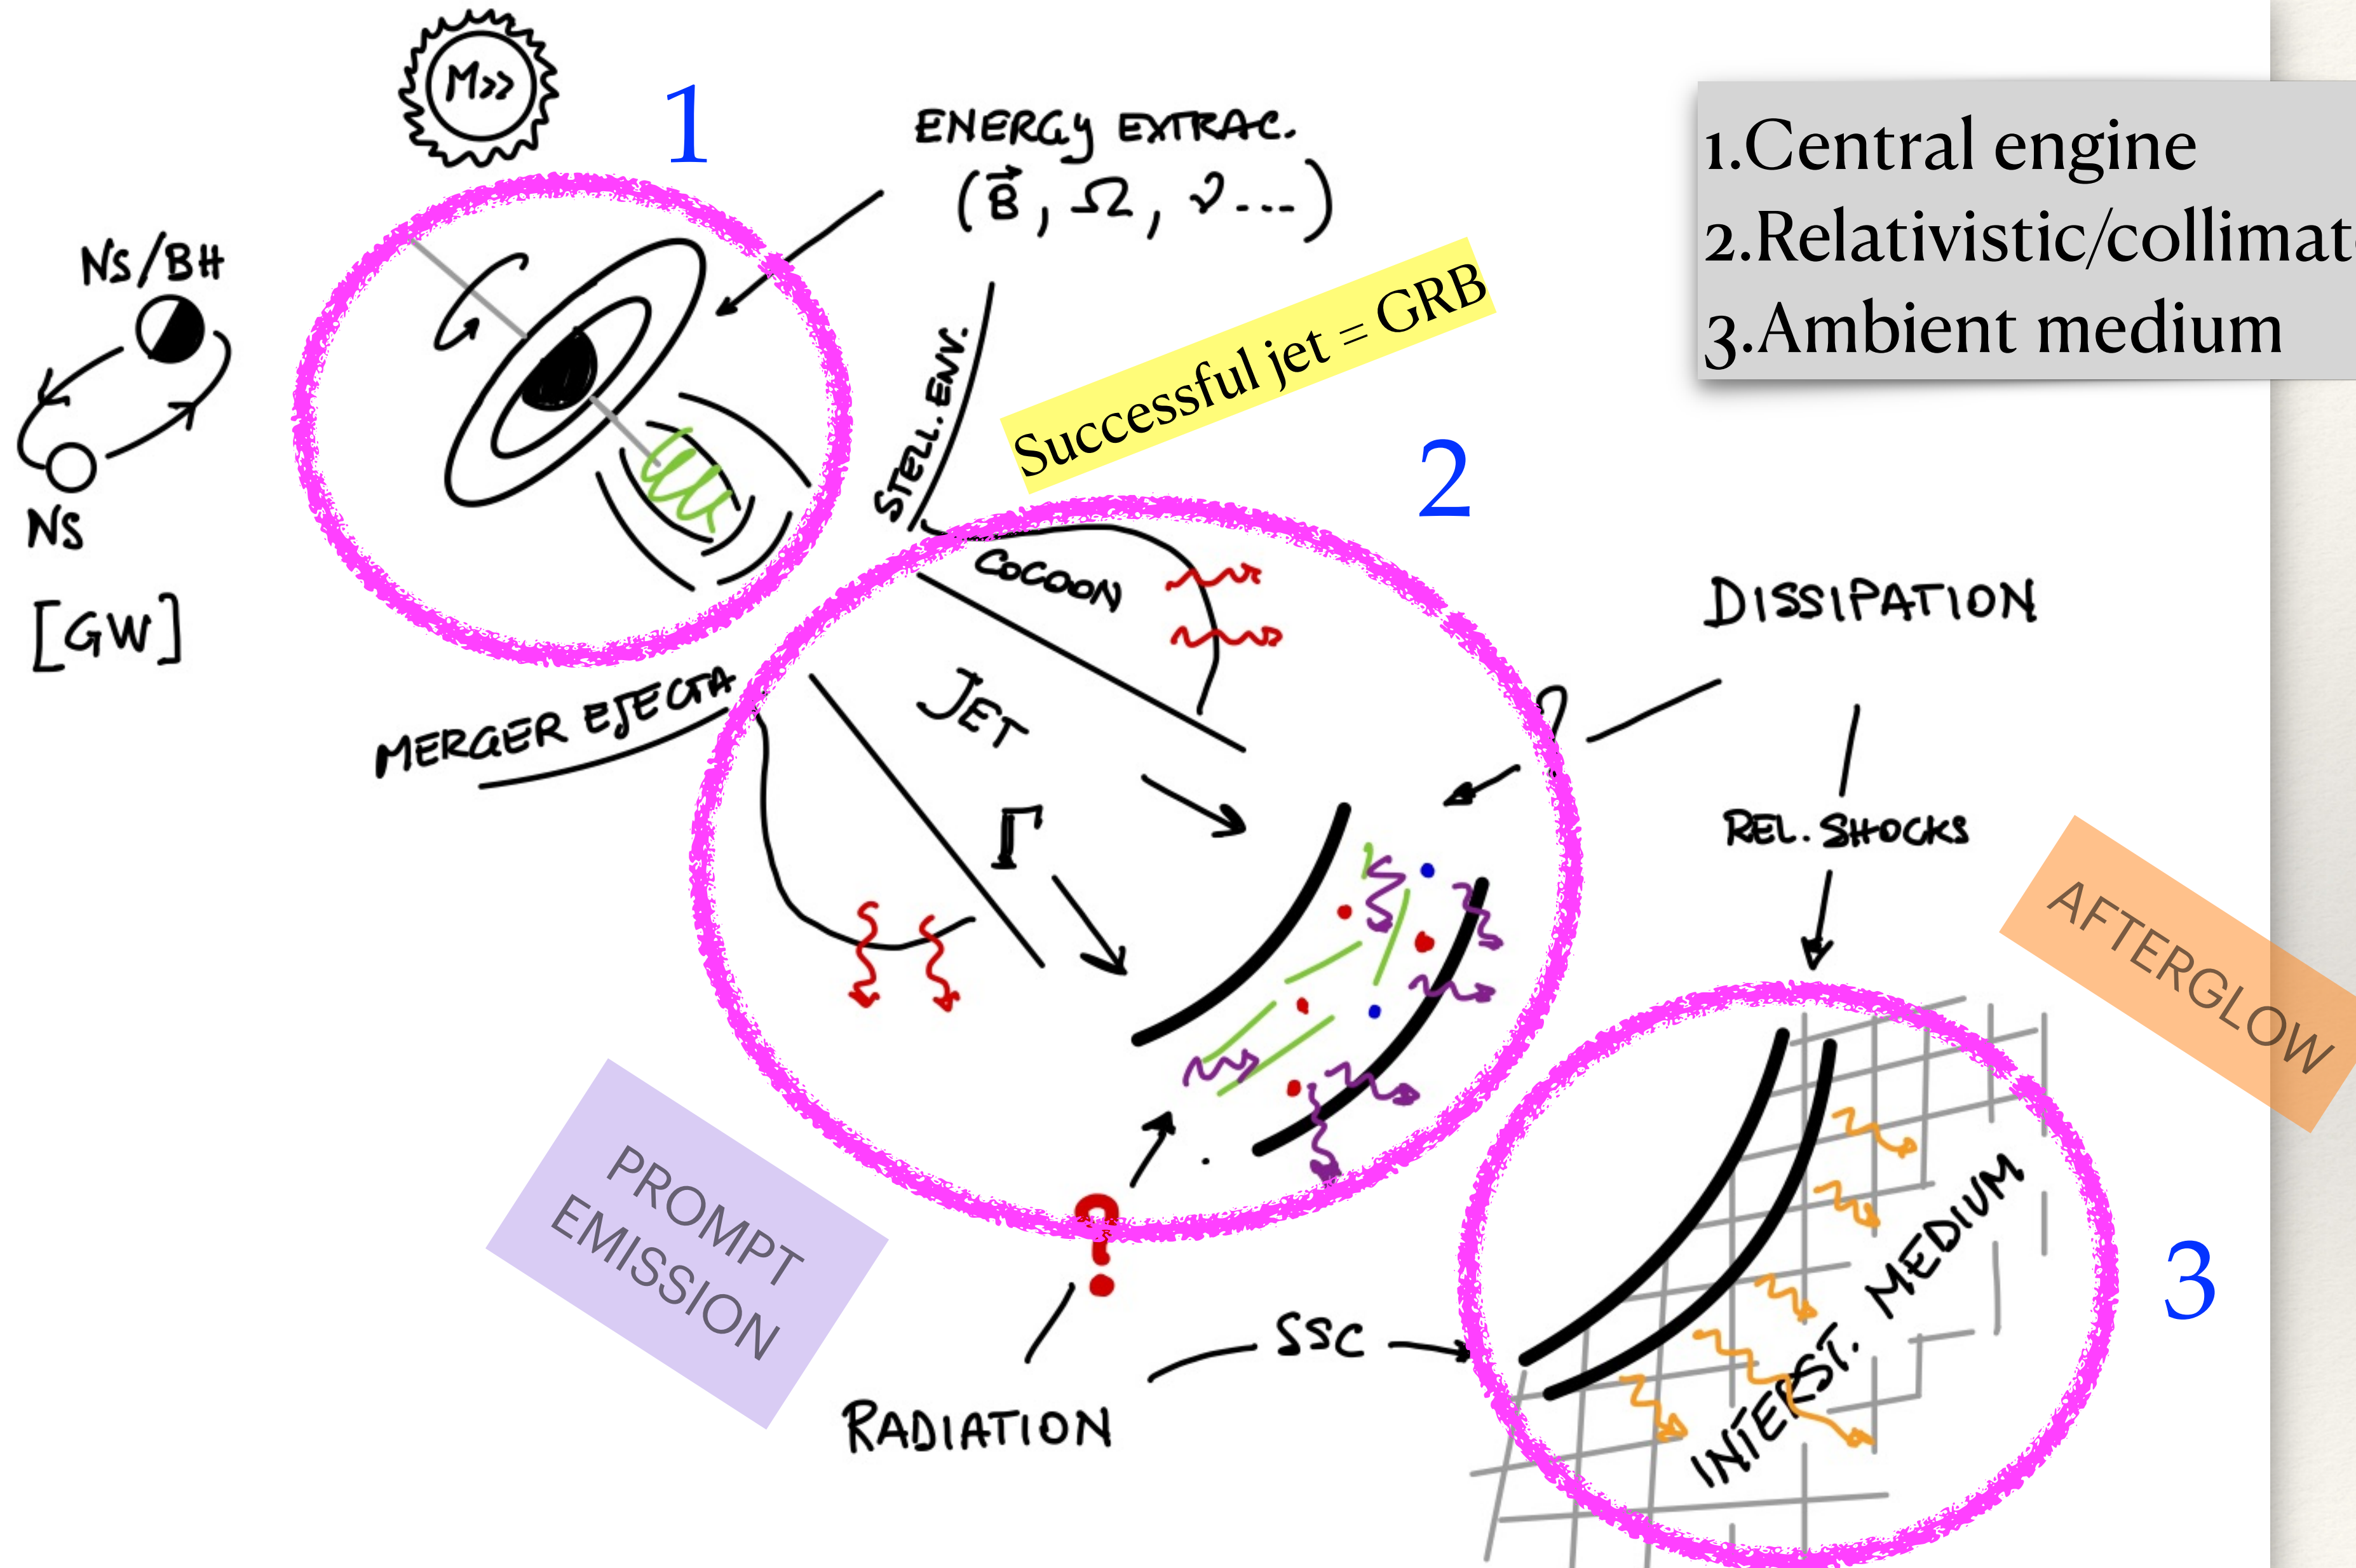 M>>
1
ENERGY EXTRAC.
(B⃗, Ω, ν...)
1.Central engine
2.Relativistic/collimat
3.Ambient medium
NS/BH
NS
[GW]
STELL. ENV.
Successful jet = GRB
2
COCOON
DISSIPATION
MERGER EJECTA
JET
?
Γ
REL. SHOCKS
AFTERGLOW
PROMPT
EMISSION
?
SSC
RADIATION
INTERST. MEDIUM
3